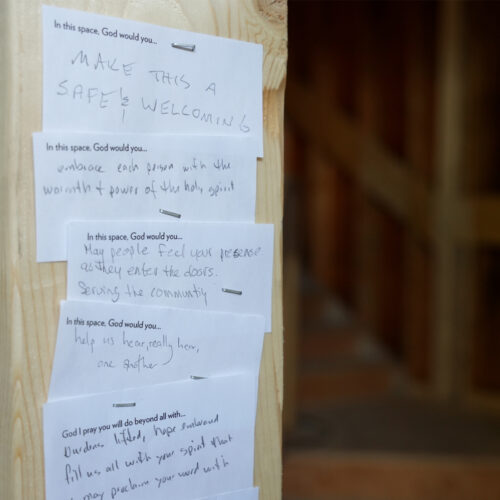 In this space, God would you...
MAKE THIS A
SAFE & WELCOMING
In this space, God would you...
embrace each person with the
warmth + power of the holy spirit
In this space, God would you...
May people feel your presense
as they enter the doors.
Serving the communtiy
In this space, God would you...
help us hear, really hear,
one another
God I pray you will do beyond all with...
Burdens lifted, hope embraced
fill us all with your spirit that
may proclaim your word with